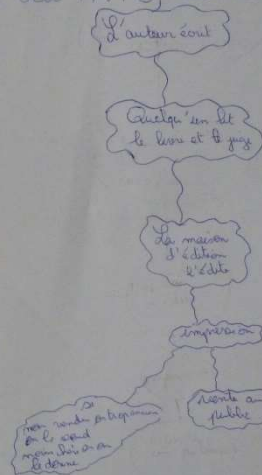 L'auteur écrit
Quelqu'un lit
le livre et le juge
La maison
d'édition
l'édite
impression
si
non vendu
on le vend
moins cher on
le donne
vente au
public